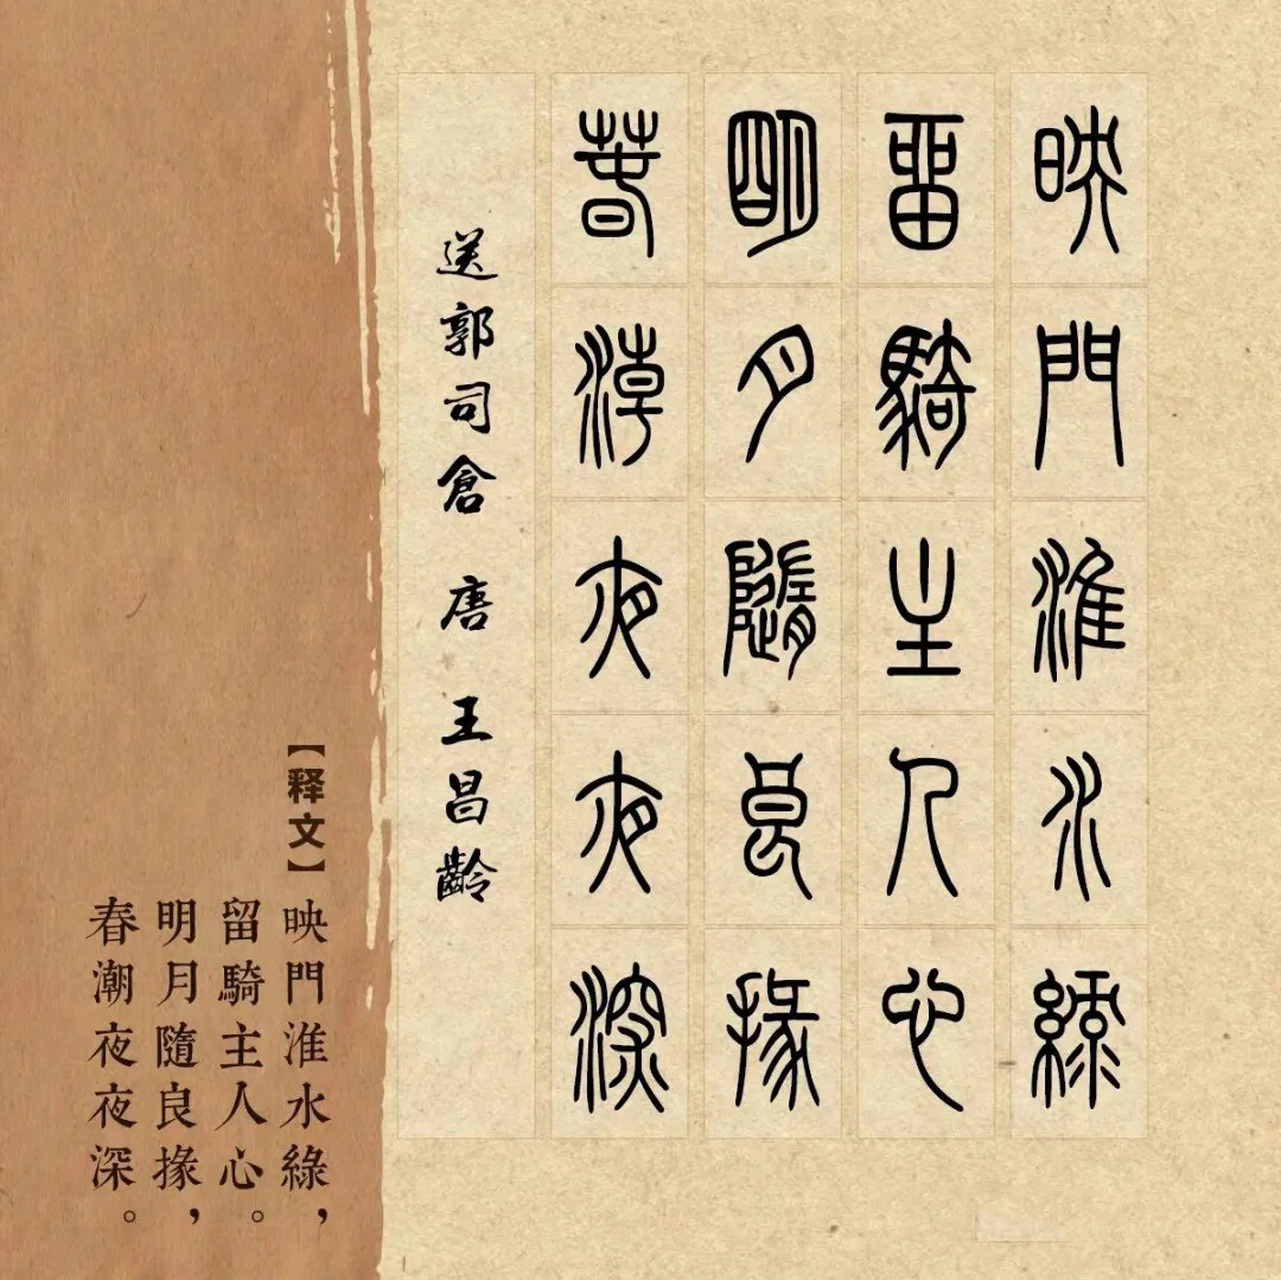 映門淮水綠
留騎主人心
明月隨良掾
春潮夜夜深
送郭司倉 唐 王昌齡
【释文】映門淮水綠，
留騎主人心。
明月隨良掾，
春潮夜夜深。